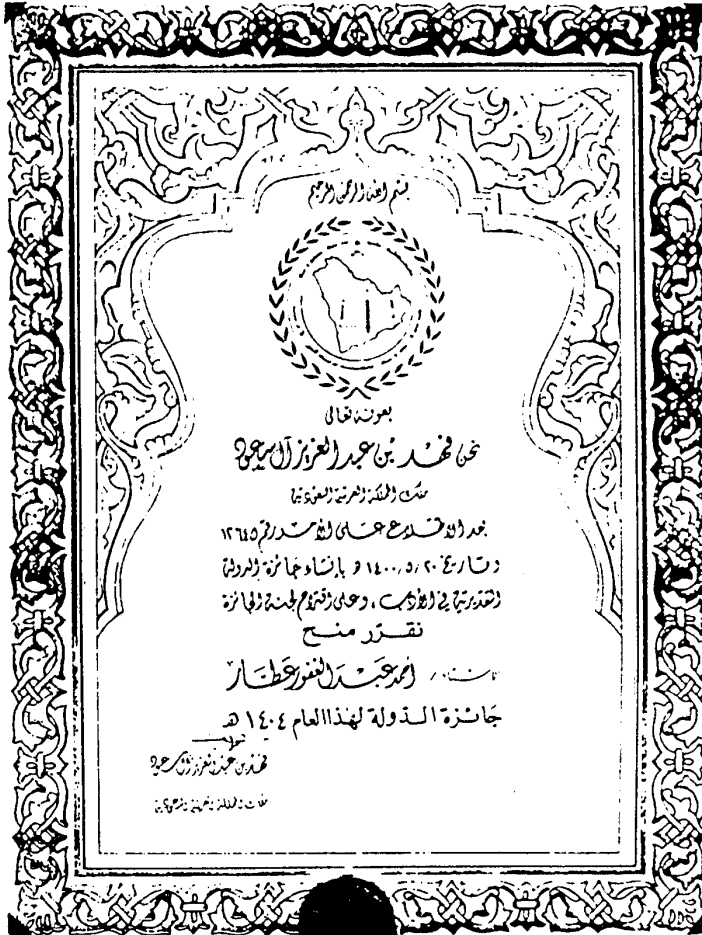 بسم الله الرحمن الرحيم
بعونه تعالى
نحن فهد بن عبد العزيز آل سعود
ملك المملكة العربية السعودية
بعد الاطلاع على الأمر رقم ١٢٦٤٥
وتاريخ ١٤٠٠/٥/٢٠ هـ بإنشاء جائزة الدولة
التقديرية في الأدب ، وعلى اقتراح لجنة الجائزة
نقرر منح
الأستاذ / أحمد عبد الغفور عطار
جائزة الدولة لهذا العام ١٤٠٤ هـ
فهد بن عبد العزيز آل سعود
ملك المملكة العربية السعودية